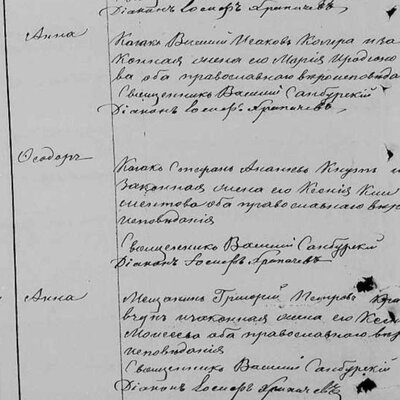 Діаконъ Іосифъ Хропачевъ
Анна
Козакъ Василій Исаковъ Комра и за
конная жена его Марія Иродіоно
ва оба православнаго вѣроисповѣда
Священникъ Василій Самбурскій
Діаконъ Іосифъ Хропачевъ
Ѳеодоръ
Козакъ Стефанъ Ананьевъ Кнутъ и
законная жена его Ксенія Кли
ментова оба православнаго вѣро
исповѣданія
Священникъ Василій Самбурскій
Діаконъ Іосифъ Хропачевъ
Анна
Мѣщанинъ Григорій Петровъ
и законная жена его
Моисеева оба православнаго вѣро
исповѣданія
Священникъ Василій Самбурскій
Діаконъ Іосифъ Хропачевъ